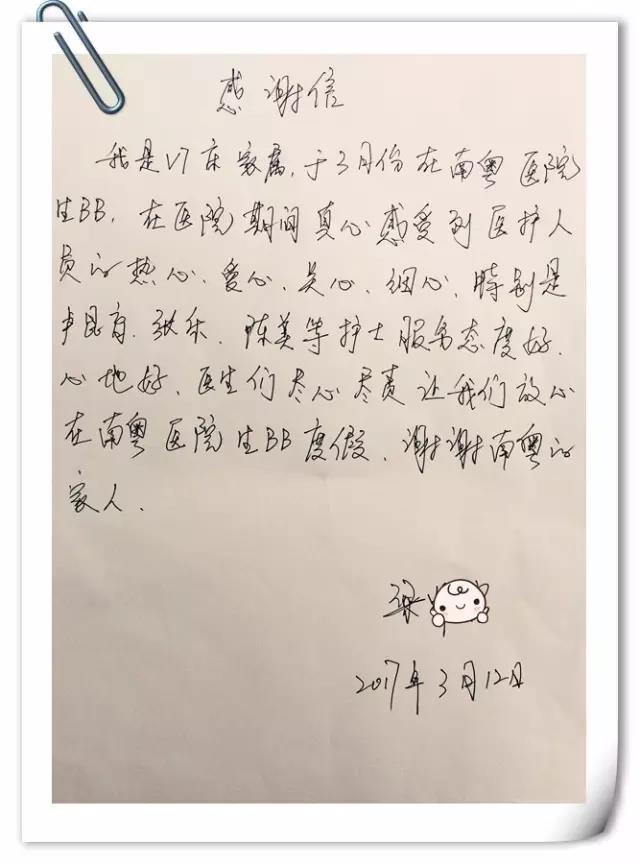 感谢信
我是V7床家属,于3月份在南粤医院
生BB,在医院期间真心感受到医护人
员的热心、爱心、关心、细心,特别是
卢昆育、张乐、陈美等护士服务态度好、
心地好,医生们尽心尽责让我们放心
在南粤医院生BB度假,谢谢南粤的
家人.
梁
2017年3月12日